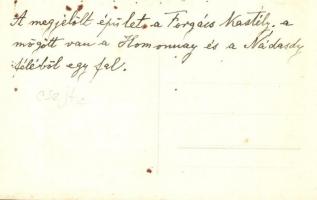 A megjelölt épület a Forgács Kastély. a
mögött van a Homonnay és a Nádasdy
féléből egy fal.